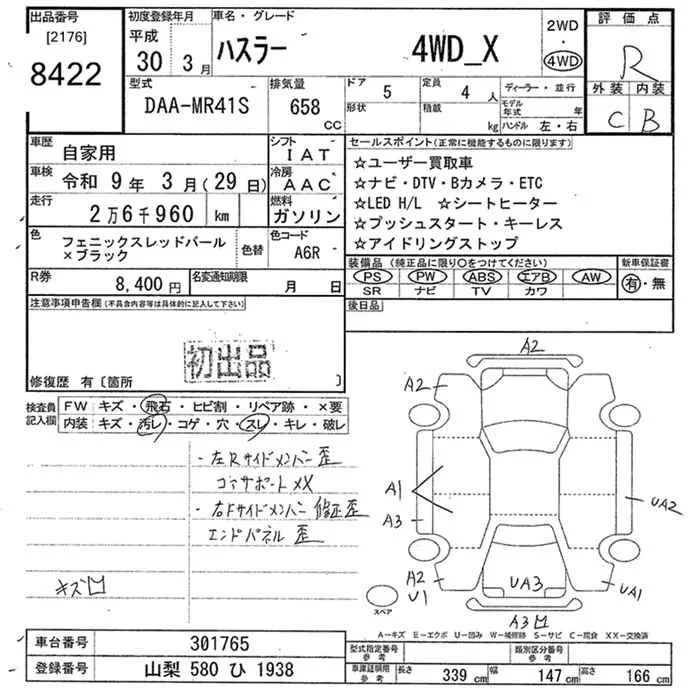 出品番号
[2176]
8422
初度登録年月
平成
30 3月
車名・グレード
ハスラー 4WD_X
2WD
・
4WD
評価点
R
外装 内装
C B
型式
DAA-MR41S
排気量
658
CC
ドア
5
形状
定員
4 人
積載
kg
ディーラー・並行
モデル年式 年
ハンドル 左・右
車歴
自家用
シフト
IAT
車検 令和 9年 3月(29日)
冷房
AAC
走行
2万6千960 km
燃料
ガソリン
色
フェニックスレッドパール
×ブラック
色替
色コード
A6R
R券
8,400円
名変通知期限
月 日
セールスポイント(正常に機能するものに限ります)
☆ユーザー買取車
☆ナビ・DTV・Bカメラ・ETC
☆LED H/L ☆シートヒーター
☆プッシュスタート・キーレス
☆アイドリングストップ
装備品(純正品に限り○をつけてください)
新車保証書
PS PW ABS エアB AW
SR ナビ TV カワ
有・無
後日品
注意事項申告欄(不具合内容等は具体的に記入して下さい)
初出品
修復歴 有〔箇所 〕
検査員
記入欄
FW キズ・飛石・ヒビ割・リペア跡・×要
内装 キズ・汚レ・コゲ・穴・スレ・キレ・破レ
・左Rサイドメンバー歪
コアサポートXX
・右Fサイドメンバー修正歪
エンドパネル歪
キズ凹
A2
A2
A1
A3
UA2
A2
U1
UA3
UA1
A3凹
スペア
A-キズ E-エクボ U-凹み W-補修跡 S-サビ C-腐食 XX-交換済
車台番号 301765
登録番号 山梨 580 ひ 1938
型式指定番号
参考
類別区分番号
参考
車庫証明用
参考
長さ 339 cm 幅 147 cm 高さ 166 cm